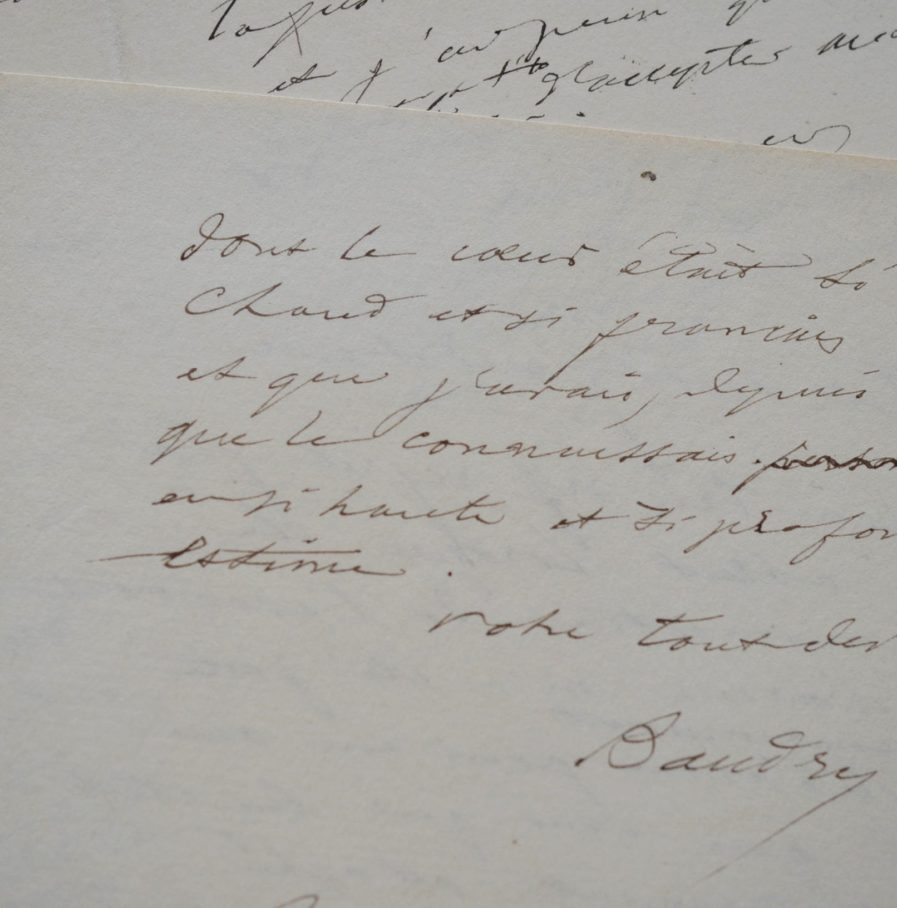 et j'ai peur
et d'accepter
dont le cœur était si
chaud et si français
et que j'avais, depuis
que le connaissais
en si haute et si profon
estime.
votre tout dev
Baudry